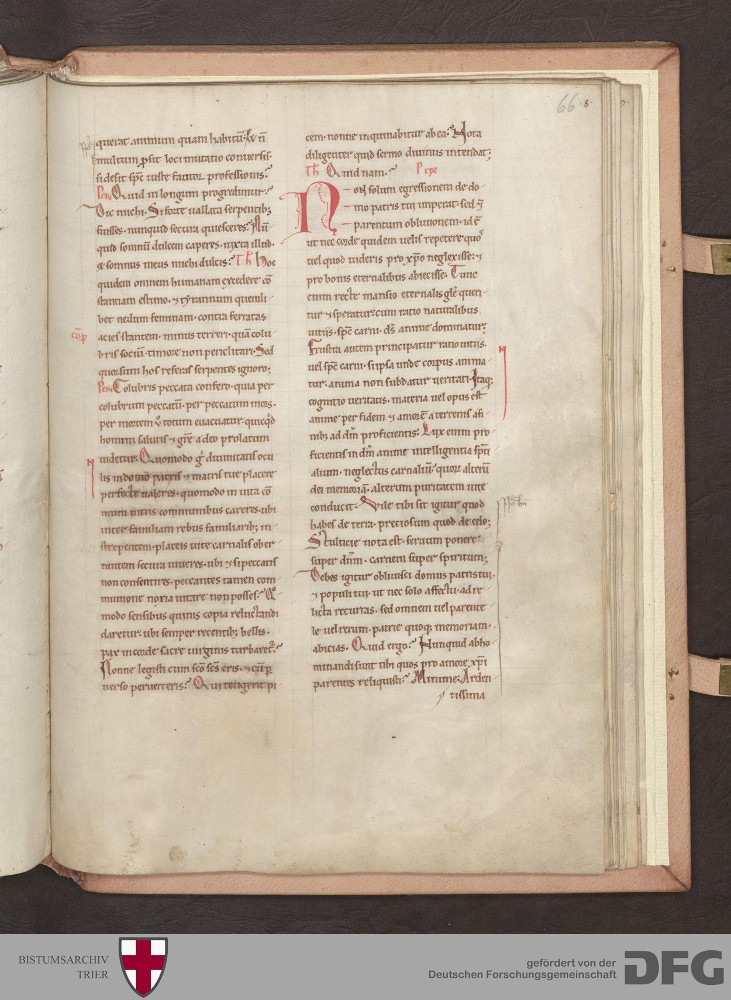 66
querat animum quam habitū.
multum ꝓsit loci mutatio conuersis.
si desit spēs iuste fautor professionis.
Quid in longum progredimur.
Dic michi. Si forte uallata serpentib;
fuisses. nunquid secura quiesceres.
quid somnū dulcem caperes. iuxta illud.
somnus meus michi dulcis. Th Hoc
quidem omnem humanam excedere cō
stantiam estimo. ⁊ tyrannum quemli
bet nedum feminam. contra ferratas
acies stantem. minus terreri. quā colu
bris sociū. timore non periclitari. Sed
quorsum hos referas serpentes ignoro.
Colubris peccata confero. quia per
colubrum peccatū. per peccatum mors.
per mortem totum euacuatur. quicqd
hominū salutis ⁊ grē a deo prolatum
uidetur. Quomodo g diuinitatis ocu
lis in domo patris ⁊ matris tue placere
perfecte ualeres. quomodo in uita cō
muni uitiis communibus careres. ubi
inter familiam rebus familiarib; in
strepentem. plateis uite carnalis ober
rantem secura uiueres. ubi ⁊ si peccatis
non consentires. peccantes tamen com
munione noxia uitare non posses.
modo sensibus quinis copia reluctandi
daretur. ubi semper recentib; bellis.
pax in corde sacre uirginis turbaret.
Nonne legisti cum scō scs eris. ⁊ cū ꝑ
uerso peruerteris. Qui tetigerit pi
cem. nonne inquinabitur ab ea. Nota
diligenter quid sermo diuinus intendat.
Th Quid nam. Pere
Non solum egressionem de do
mo patris tui imperat. sed ⁊
parentum obliuionem. id ē
ut nec corde quidem uelis repetere quos
uel quod uideris pro xpō neglexisse. ⁊
pro bonis eternalibus abiecisse. Tunc
enim recte mansio eternalis glē queri
tur ⁊ speratur cum ratio naturalibus
uitiis. spēs carni. ds anime dominatur.
Frustra autem principatur ratio uitiis.
uel spēs carni. si ipsa unde corpus anima
tur. anima non subdatur ueritati. Itaq;
cognitio ueritatis. materia uel opus est
anime per fidem ⁊ amorē a terrenis
nib; ad dm proficientis. Lux enim pro
ficientis in dm anime intelligentia spū
alium. neglectus carnaliū. quorū alterū
dei memoria. alterum puritatem uite
conducit. Vile tibi sit igitur quod
habes de terra. preciosum quod de celo.
Stulticie nota est. seruum ponere
super dnm. carnem super spiritum.
Debes igitur obliuisci domus patris tui.
⁊ populi tui. ut nec solo affectu. ad re
licta recurras. sed omnem uel parente
le uel rerum. patrie quoq; memoriam.
abicias. Quid ergo. Nunquid abho
minandi sunt tibi quos pro amore xpi
parentes reliquisti. Minime. Arden
tissima
BISTUMSARCHIV
TRIER
gefördert von der
Deutschen Forschungsgemeinschaft
DFG